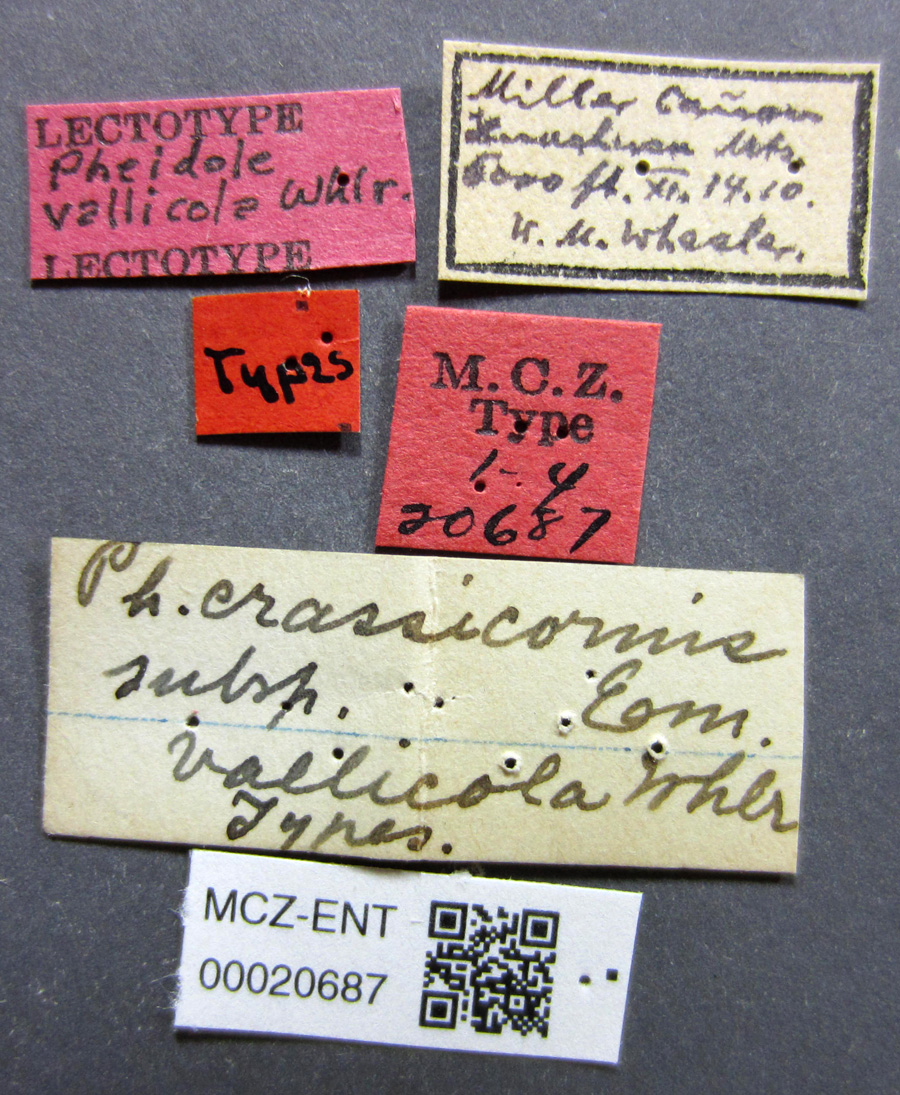 LECTOTYPE
Pheidole
vallicola Whlr.
LECTOTYPE
Miller Cañon
Huachuca Mts
5000 ft. XI. 14. 10.
W. M. Wheeler.
Types
M.C.Z.
Type
1-4
20687
Ph. crassicornis
subsp. Em.
vallicola Whlr
Types.
MCZ-ENT
00020687